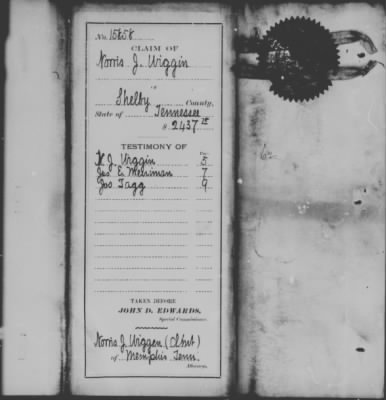 No. 15658
CLAIM OF
Norris J. Wiggin
of
Shelby County,
State of Tennessee
$ 2437 75
TESTIMONY OF
N. J. Wiggin 5
Jas. E. Merriman 7
Jos. Tagg 9
TAKEN BEFORE
JOHN D. EDWARDS,
Special Commissioner.
Norris J. Wiggin (Clmt)
of Memphis Tenn.
Attorney.